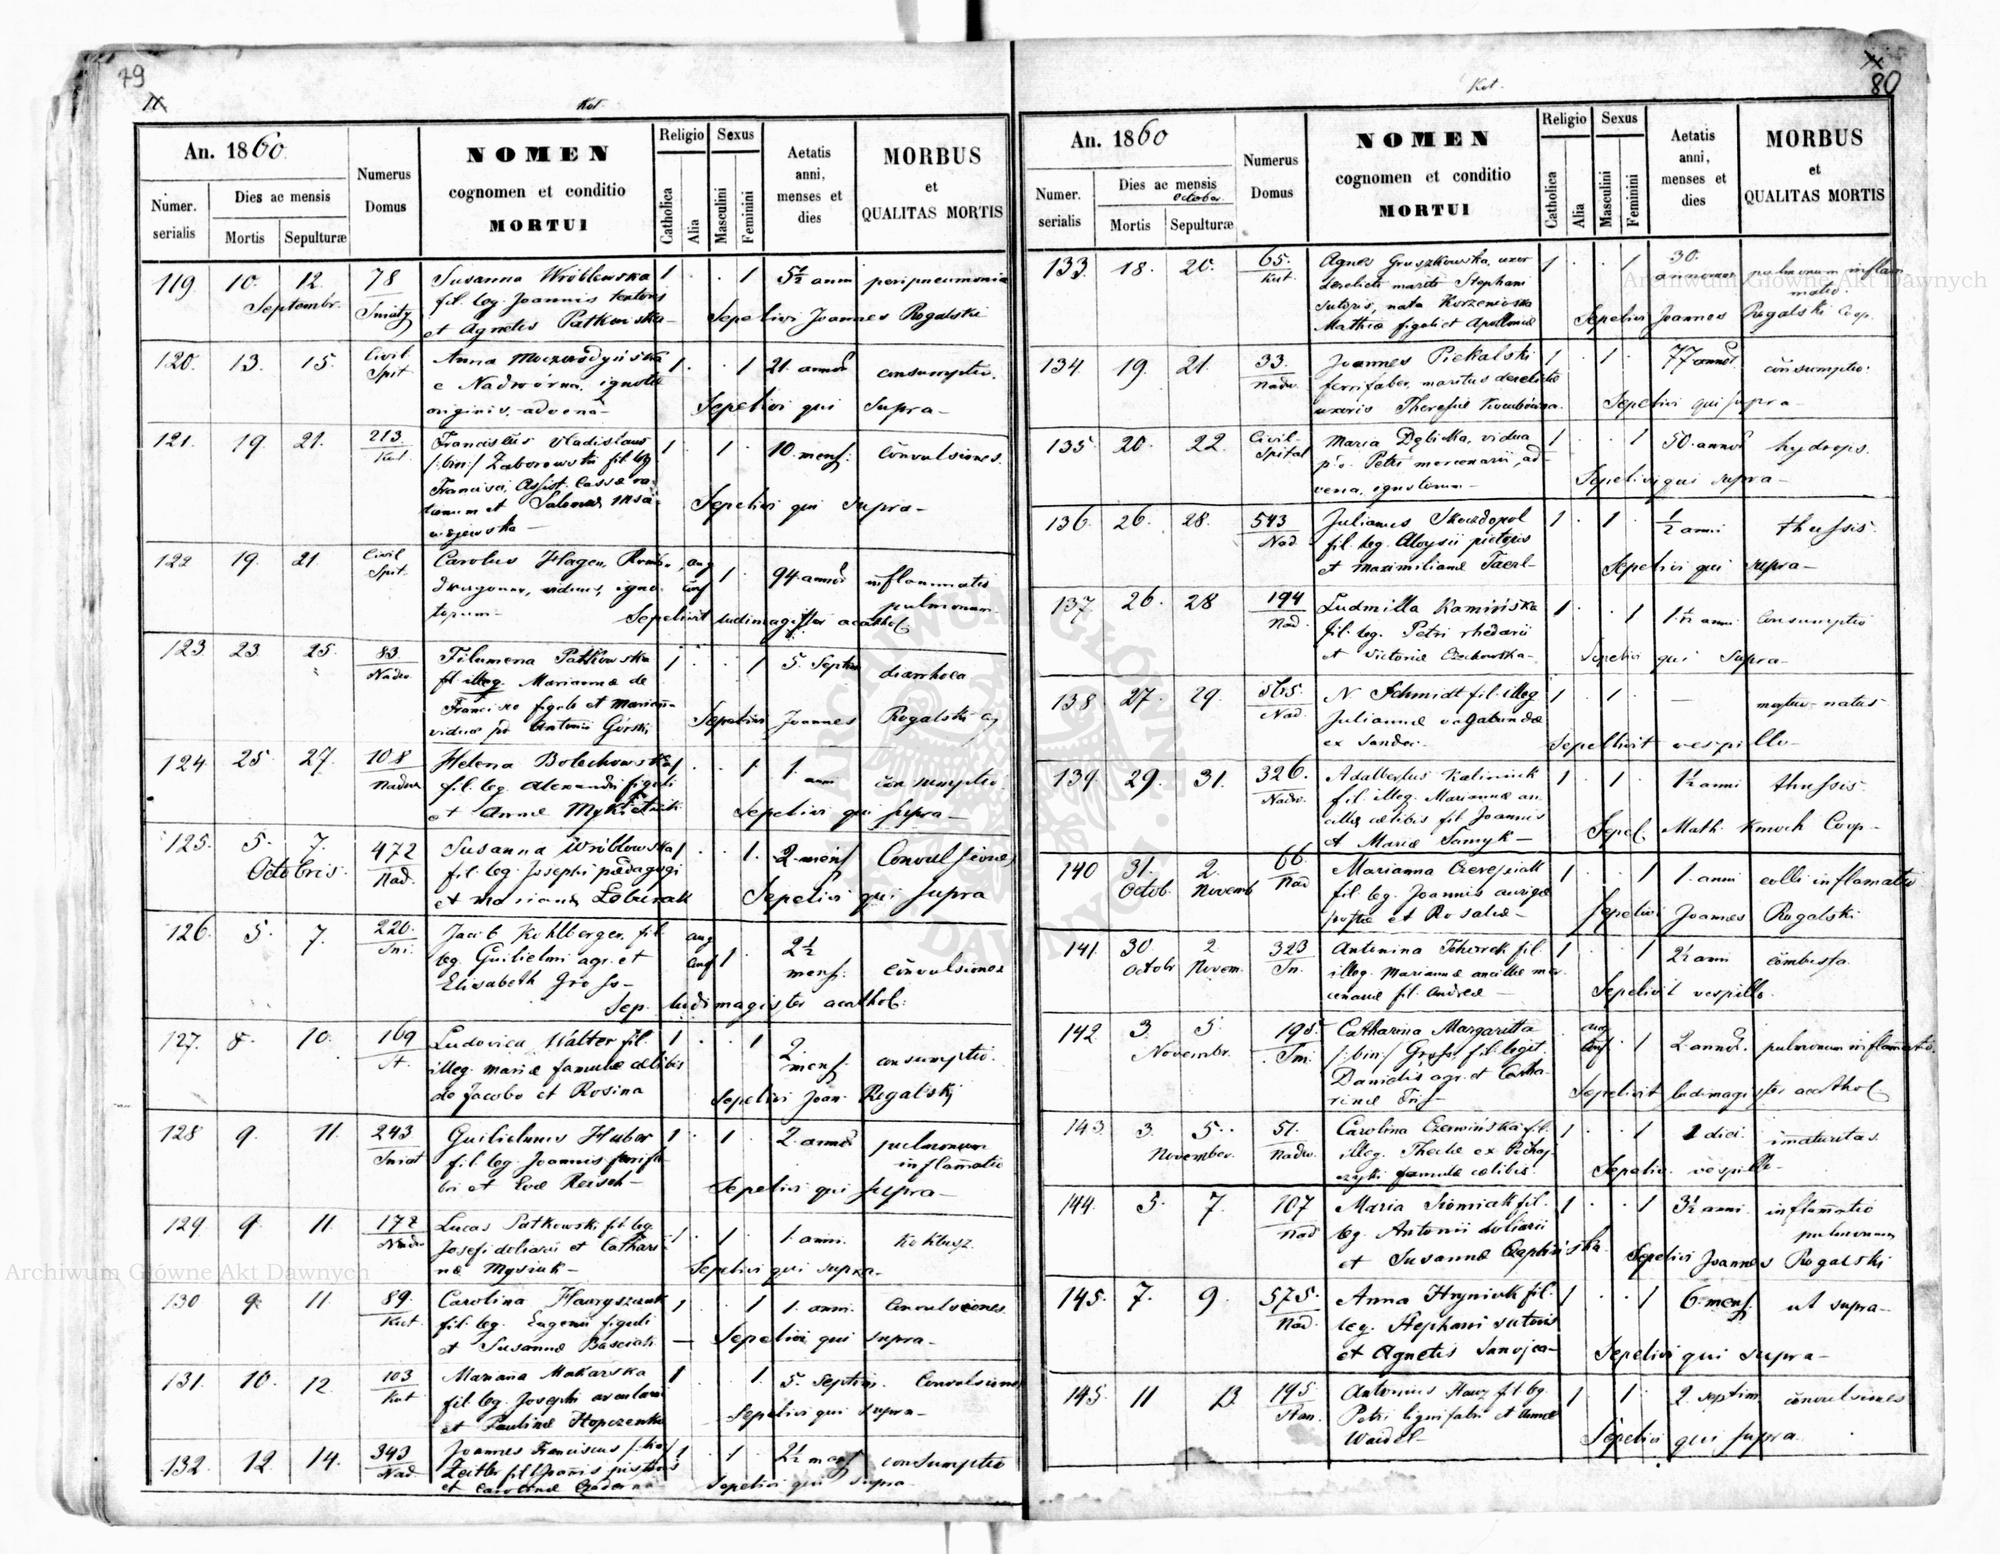 79
Kot.
An. 1860
Numerus Domus
NOMEN
cognomen et conditio
MORTUI
Religio
Sexus
Aetatis anni, menses et dies
MORBUS
et
QUALITAS MORTIS
Numer. serialis
Dies ac mensis
Mortis
Sepulturæ
Catholica
Alia
Masculini
Feminini
119 10. 12. 78 Susanna Wróblewska 1 . . 1 5½ anni peripneumonia
Septembr. Sniaty fil. leg. Joannis textoris
et Agnetis Patkowska Sepelivi Joannes Rogalski
120. 13. 15. Civil. Anna 1. . 1 21. annor consumptio.
Spit. e Nadworna, ignotæ
originis, advena Sepelivi qui supra
121. 19 21. 213. Franciscus Vladislaus 1 . 1 . 10. mens. convulsiones.
Kut. /:bin:/ Zaborowski fil. leg
Francisci, Assist. Cassæ
et Salomeæ Sepelivi qui supra
122 19. 21. Civil Carolus Hagen, aug 1 . 94 annor inflammatio
Spit. viduus, igno conf pulmonum
torum Sepelivit ludimagister acathol.
123 23. 25. 83. Filumena Patkowska 1 . . 1 5. Septim diarrhoea
Nadw. fil illeg. Mariannæ de
Francisco figulo et Marianna
viduæ po Antonii Górski Sepelivi Joannes Rogalski
124 25 27. 108 Helena Bolechowska 1 . . 1 1. anni consumptio
Nadw fil. leg. Alexandri figuli
et Annæ Sepelivi qui supra
125. 5. 7. 472 Susanna Wróblowska 1 . . 1. 2 mens Convulsiones
Octobris. Nad. fil. leg. Josephi pædagogi
et Mariannæ Sepelivi qui supra
126. 5. 7. 220. Jacob Kohlberger, fil. aug 1 . 2½ mens. convulsiones
Sni. leg. Guilielmi agr. et conf
Elisabeth Gross
Sep. ludimagister acathol.
127. 8. 10. 169 Ludovica Walter fil. 1 . . 1 2. mens. consumptio.
illeg. Mariæ famulæ cælibis
de Jacobo et Rosina Sepelivi Joan. Rogalski
128 9. 11. 243 Guilielmus Huber 1 . 1 . 2. annor pulmonum
Sniat fil. leg. Joannis inflamatio
et Evæ Reisch Sepelivi qui supra
129. 9. 11. 172 Lucas Patkowski fil. leg. 1 . 1 . 1. anni. koklusz.
Nadw Josefi doliarii et Cathari
næ Mysiuk Sepelivi qui supra
130 9. 11. 89. Carolina 1 . . 1 1. anni. Convulsiones.
Kut. fil. leg. Eugenii figuli
et Susannæ Sepelivi qui supra
131. 10. 12. 103 Mariana Makarska 1 . . 1. 5. septim. Convulsiones
Kut fil. leg. Josephi
et Paulinæ Sepelivi qui supra
132. 12. 14. 343 Joannes Franciscus 1 . 1 . 2½ mens consumptio
Nad. Zeitler fil Joannis pistoris
et Carolinæ Sepelivi qui supra
80
Kot.
An. 1860
Numerus Domus
NOMEN
cognomen et conditio
MORTUI
Religio
Sexus
Aetatis anni, menses et dies
MORBUS
et
QUALITAS MORTIS
Numer. serialis
Dies ac mensis
October
Mortis
Sepulturæ
Catholica
Alia
Masculini
Feminini
133. 18. 20. 65. Agnes Gruszkowska, uxor 1 . . 1 30. annorum pulmonum inflam
Kut. derelicti mariti Stephani matio.
sutoris, nata Korzeniowska
Mathiæ figuli et Apolloniæ Sepelivi Joannes Rogalski Coop.
134. 19. 21. 33. Joannes Piekalski 1 . 1 . 77 annor consumptio.
Nadw. ferrifaber, maritus derelictæ
uxoris Theresiæ Sepelivi qui supra
135. 20. 22 Civil. Maria Dębicka, vidua 1 . . 1 50. annor hydrops.
Spital p.o. Petri mercenarii, ad
vena, ignotorum Sepelivi qui supra
136. 26. 28. 543 Julianus 1 . 1 . ½ anni thussis.
Nad fil. leg. Aloysii pictoris
et Maximilianæ Sepelivi qui supra
137. 26. 28 194 Ludmilla Kamińska 1 . . 1 1.½ anni Consumptio
Nad. fil. leg. Petri rhedarii
et Victoriæ Czechowska Sepelivi qui supra
138 27. 29. 565. N Schmidt fil. illeg 1 . 1 . — natus.
Nad. Juliannæ vagabundæ
ex Sandor. Sepellivit vespillo
139. 29. 31. 326. Adalbertus Kaliniuk 1 . 1 . 1½ anni thussis.
Nadw. fil. illeg. Mariannæ an
cillæ cælibis fil Joannis
et Mariæ Sepel. Math. Knoch Coop
140 31. 2. 66. Marianna 1 . . 1 1. anni colli inflamatio
Octob. Novemb Nad fil. leg. Joannis aurigæ
et Rosaliæ Sepelivi Joannes Rogalski
141. 30. 2 323 Antonina fil. 1 . . 1 2½ anni combusta.
Octobr Novem. Sn. illeg. Mariannæ ancillæ
fil. Andreæ Sepelivit vespillo.
142 3. 5. 195. Catharina Margaritta aug . 1 2. annor. pulmonum inflamatio.
Novembr. Sni. /:bin:/ Gross fil. legit. conf
Danielis agr. et Catha
rinæ Sepelivit ludimagister acathol
143. 3. 5. 51. Carolina Czerwińska fil. 1 . . 1 1 diei. imaturitas.
November. Nadw. illeg. Theclæ ex
famulæ cælibis Sepelivi. vespillo
144. 5. 7. 107 Maria fil. 1 . . 1 3½ anni. inflamatio
Nad leg. Antonii doliarii pulmonum
et Susannæ Sepelivi Joannes Rogalski
145. 7. 9. 575. Anna Hryniuk fil. 1 . . 1 6. mens. ut supra
Nad. leg. Stephani sutoris
et Agnetis Sepelivi qui supra
145. 11 13. 195. Antonius fil leg. 1 . 1 . 2. septim. convulsiones
Stan. Petri lignifabri et Annæ
Waidel Sepelivi qui supra.
Archiwum Główne Akt Dawnych
Archiwum Główne Akt Dawnych
ARCHIWUM GŁÓWNE AKT DAWNYCH